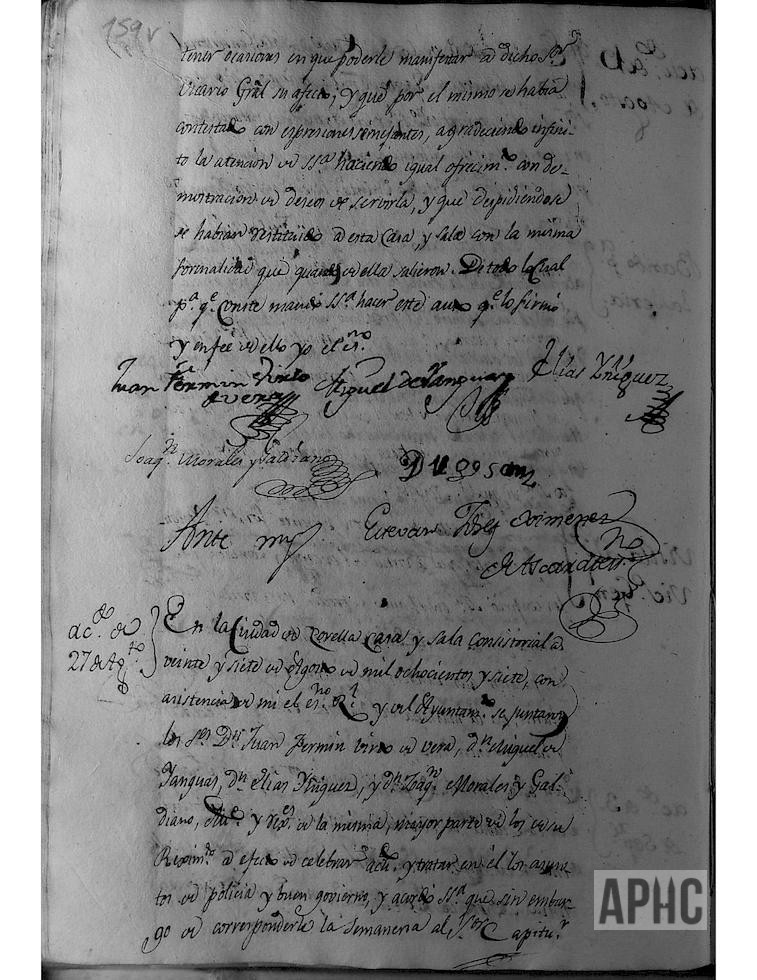 159v
tener ocasiones en que poderle manifestar a dicho S.r
Vicario Gral su afecto; y que por el mismo se havia
contestado con espresiones semejantes, agradeciendo infini-
to la atencion de SSa haciendo igual ofrecim.to con de-
mostracion de deseos de servirla, y que despidiendose
se habian restituido a esta Casa, y sala con la misma
formalidad que quando de ella salieron. De todo lo cual
p.a q.e Conste mandó SS.a hacer este auto q.e lo firmó
y en fee de ello yo el es.no
Juan Fermin Virto
de vera
Miguel de Yanguas
Elias Yñiguez
Joaq.n Morales y Galdiano
Ante my
Estevan Ximenez
de Ascarate
ac.do de
27 de Ag.to
En la Ciudad de Corella Casa y sala consistorial a
veinte y siete de Agosto de mil ochocientos y siete, con
asistencia de mi el es.no R.l y del Ayuntam.to se juntaron
los S.res D.n Juan Fermin virto de vera, d.n Miguel de
Yanguas, d.n Elias Yñiguez, y d.n Joaq.n Morales y Gal-
diano, Alc.e y Rex.es de la misma, mayor parte de los de su
Reximto a efecto de celebrar acdo. y tratar en él los asun-
tos de policia y buen govierno, y acordó SS.a que sin embar-
go de corresponderle la semaneria al S.or Capitu.r
APHC